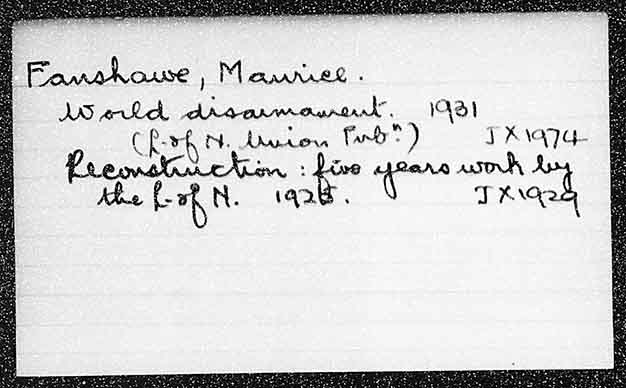 Fanshawe, Maurice.
World disarmament. 1931
(L. of N. Union Pubn.) JX1974
Reconstruction : five years work by
the L. of N. 1925. JX1929